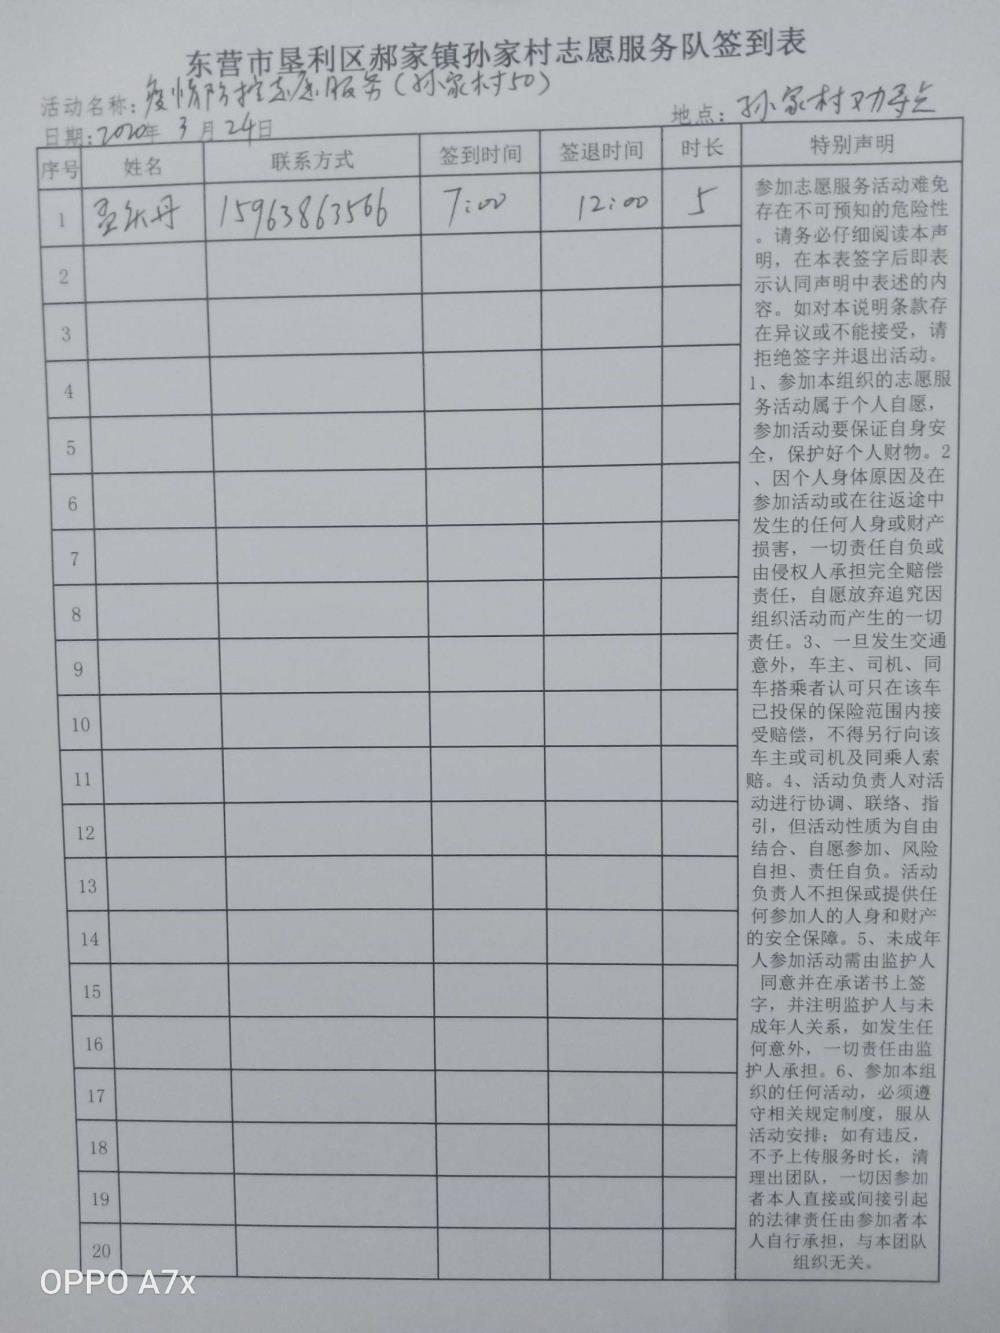 东营市垦利区郝家镇孙家村志愿服务队签到表
活动名称:疫情防控志愿服务(孙家村50)
日期:2020年3月24日
地点:孙家村劝导点
序号 姓名 联系方式 签到时间 签退时间 时长 特别声明
1 15963863566 7:00 12:00 5
2
3
4
5
6
7
8
9
10
11
12
13
14
15
16
17
18
19
20
参加志愿服务活动难免
存在不可预知的危险性
。请务必仔细阅读本声
明,在本表签字后即表
示认同声明中表述的内
容。如对本说明条款存
在异议或不能接受,请
拒绝签字并退出活动。
1、参加本组织的志愿服
务活动属于个人自愿,
参加活动要保证自身安
全,保护好个人财物。2
、因个人身体原因及在
参加活动或在往返途中
发生的任何人身或财产
损害,一切责任自负或
由侵权人承担完全赔偿
责任,自愿放弃追究因
组织活动而产生的一切
责任。3、一旦发生交通
意外,车主、司机、同
车搭乘者认可只在该车
已投保的保险范围内接
受赔偿,不得另行向该
车主或司机及同乘人索
赔。4、活动负责人对活
动进行协调、联络、指
引,但活动性质为自由
结合、自愿参加、风险
自担、责任自负。活动
负责人不担保或提供任
何参加人的人身和财产
的安全保障。5、未成年
人参加活动需由监护人
同意并在承诺书上签
字,并注明监护人与未
成年人关系,如发生任
何意外,一切责任由监
护人承担。6、参加本组
织的任何活动,必须遵
守相关规定制度,服从
活动安排;如有违反,
不予上传服务时长,清
理出团队,一切因参加
者本人直接或间接引起
的法律责任由参加者本
人自行承担,与本团队
组织无关。
OPPO A7x